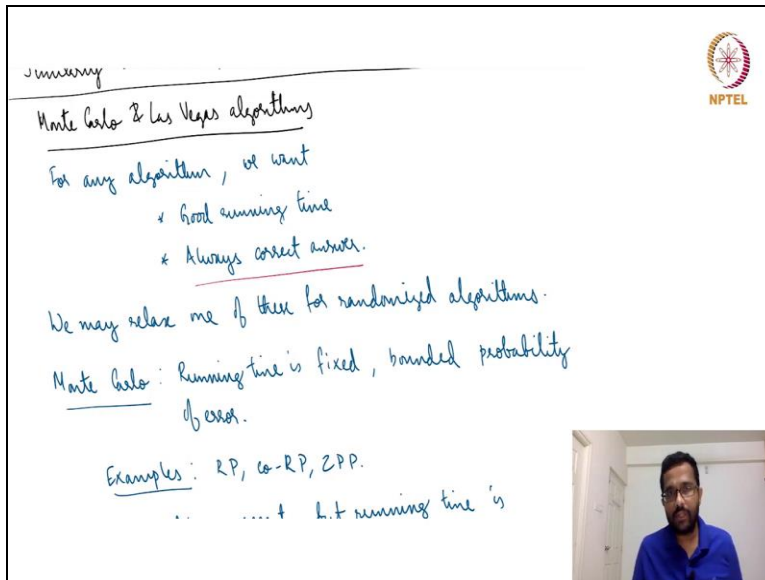 Summary
NPTEL
Monte Carlo & Las Vegas algorithms
For any algorithm, we want
* Good running time
* Always correct answer.
We may relax one of these for randomized algorithms.
Monte Carlo: Running time is fixed, bounded probability
of error.
Examples: RP, co-RP, ZPP.
but running time is